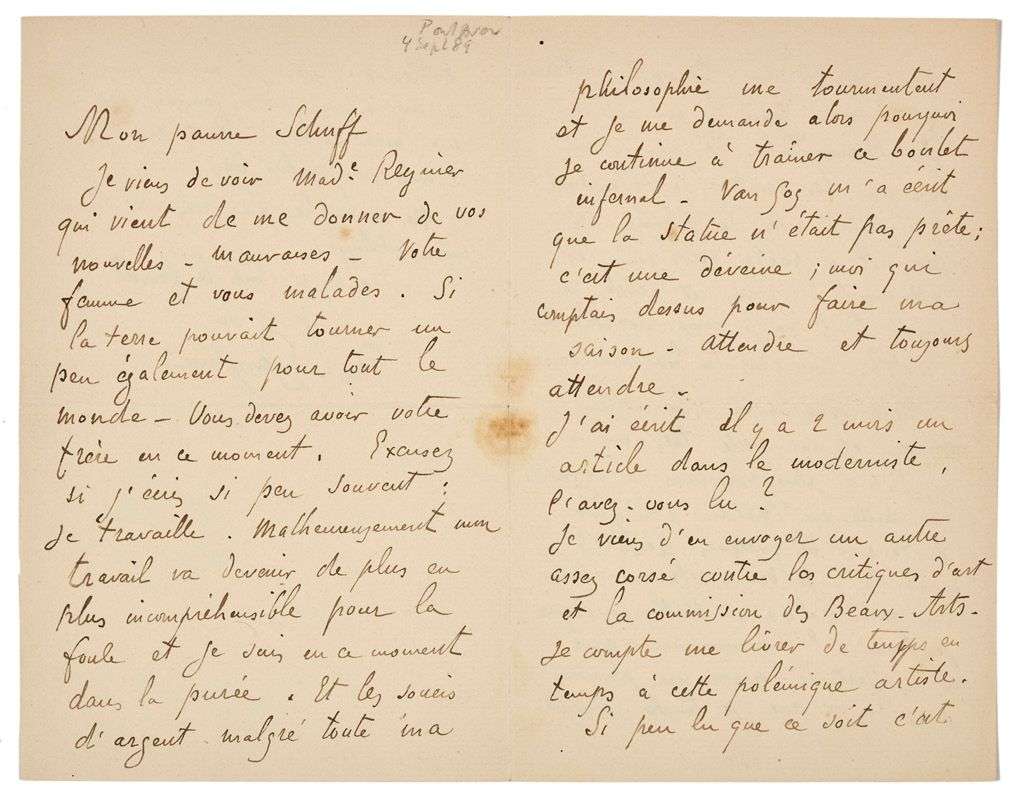 Pont Aven
4 Sept 89
Mon pauvre Schuff
Je viens de voir Made. Reynier
qui vient de me donner de vos
nouvelles - mauvaises - Votre
femme et vous malades. Si
la terre pouvait tourner un
peu également pour tout le
monde - Vous devez avoir votre
frère en ce moment. Excusez
si j'écris si peu souvent :
je travaille. Malheureusement mon
travail va devenir de plus en
plus incompréhensible pour la
foule et je suis en ce moment
dans la purée. Et les soucis
d'argent malgré toute ma
philosophie me tourmentent
et je me demande alors pourquoi
je continue à traîner ce boulet
infernal - Van Gog m'a écrit
que la statue n'était pas prête ;
c'est une déveine ; moi qui
comptais dessus pour faire ma
saison - attendre et toujours
attendre -
J'ai écrit il y a 2 mois un
article dans le moderniste,
l'avez-vous lu ?
Je viens d'en envoyer un autre
assez corsé contre les critiques d'art
et la commission des Beaux-Arts -
Je compte me livrer de temps en
temps à cette polémique artiste.
Si peu lu que ce soit c'est